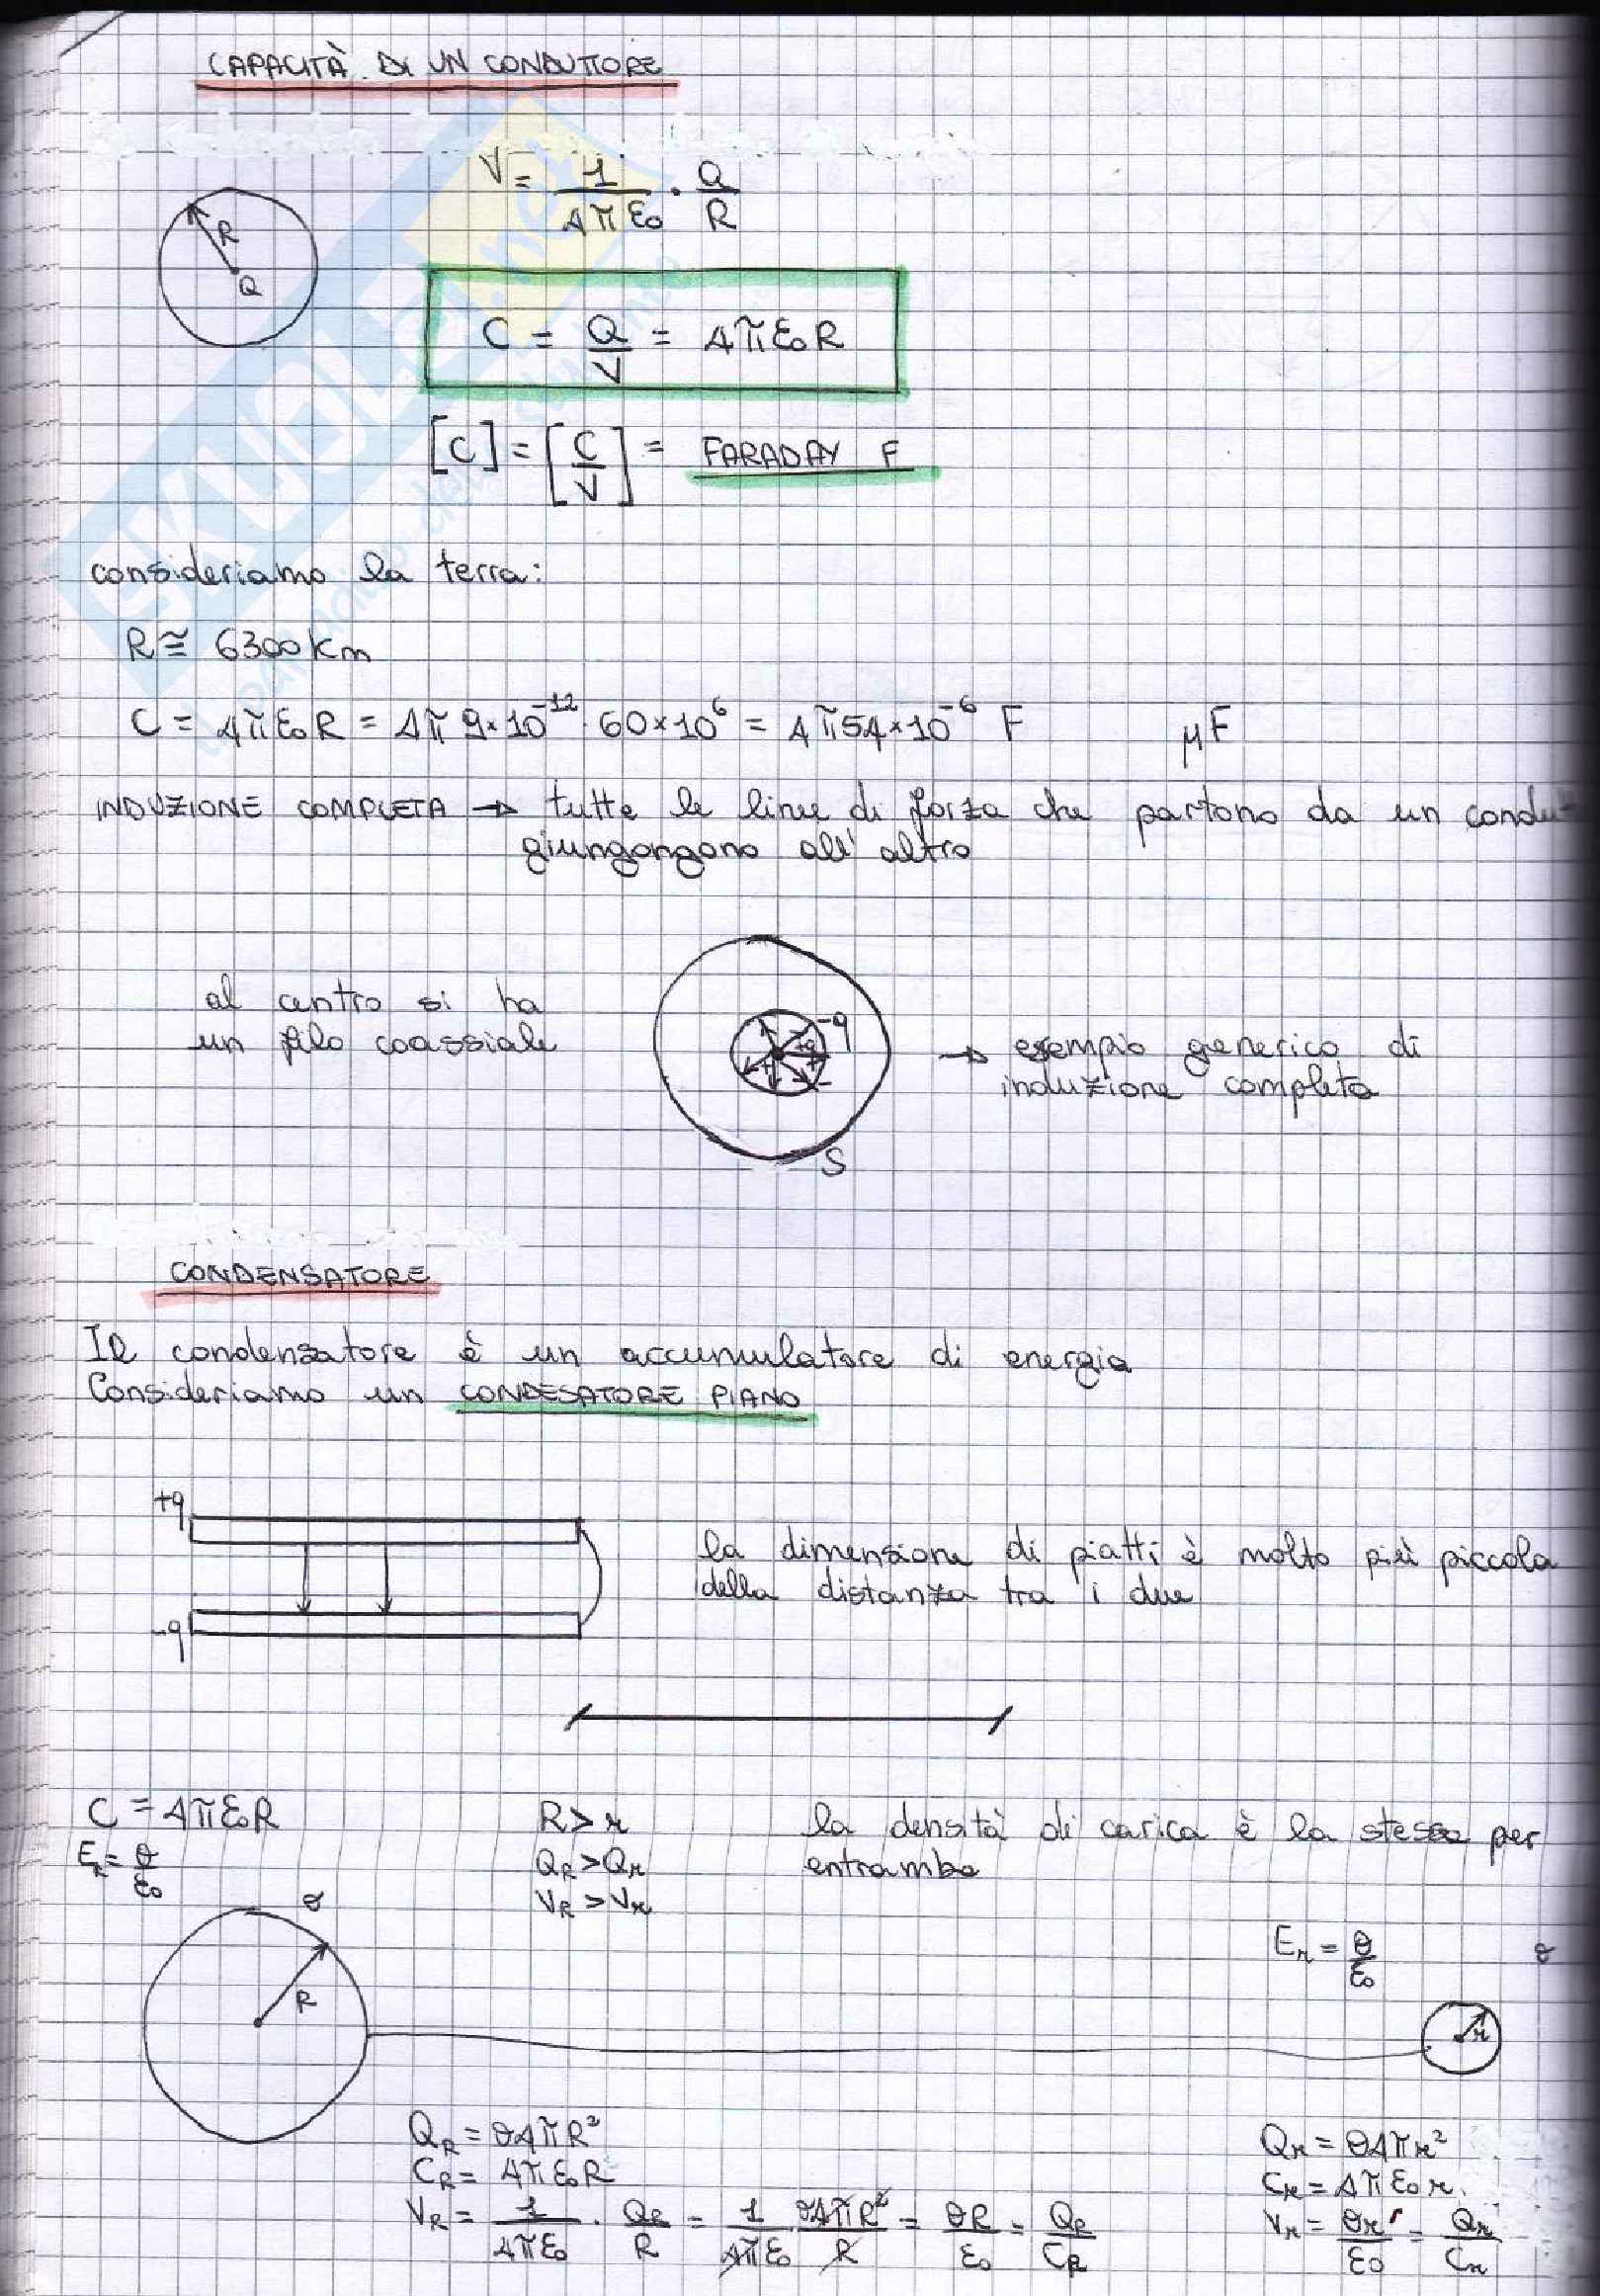 CAPACITÀ DI UN CONDUTTORE
V = 1/4πε₀ · Q/R
R
Q
C = Q/V = 4πε₀R
[C] = [C/V] = FARADAY F
consideriamo la terra:
R ≅ 6300 km
C = 4πε₀R = 4π 9×10⁻¹² · 60×10⁶ = 4π54×10⁻⁶ F μF
INDUZIONE COMPLETA → tutte le linee di forza che partono da un condut
giungongono all'altro
al centro si ha
un filo coassiale
-q
+q
S
→ esempio generico di
induzione completa
CONDENSATORE
Il condensatore è un accumulatore di energia
Consideriamo un CONDESATORE PIANO
+q
-q
la dimensione di piatti è molto più piccola
della distanza tra i due
C = 4πε₀R
E_R = σ/ε₀
σ
R
R > r
Q_R > Q_r
V_R > V_r
la densità di carica è la stessa per
entrambe
E_r = σ/ε₀
σ
r
Q_R = σ4πR²
C_R = 4πε₀R
V_R = 1/4πε₀ · Q_R/R = 1/4πε₀ σ4πR²/R = σR/ε₀ = Q_R/C_R
Q_r = σ4πr²
C_r = 4πε₀r
V_r = σr/ε₀ = Q_r/C_r